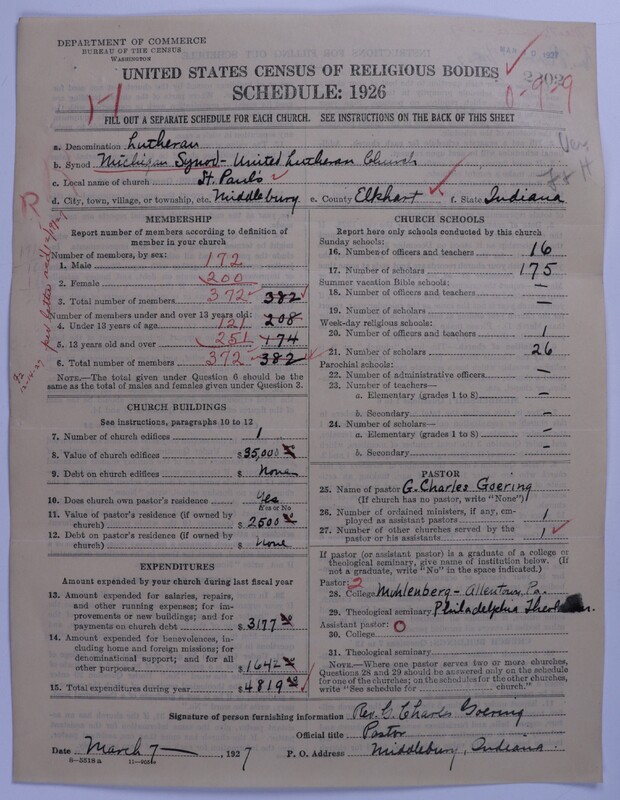 DEPARTMENT OF COMMERCE
BUREAU OF THE CENSUS
WASHINGTON
UNITED STATES CENSUS OF RELIGIOUS BODIES
SCHEDULE: 1926
1-1
FILL OUT A SEPARATE SCHEDULE FOR EACH CHURCH. SEE INSTRUCTIONS ON THE BACK OF THIS SHEET
a. Denomination Lutheran
b. Synod Michigan Synod - United Lutheran Church
c. Local name of church St. Paul's
d. City, town, village, or township, etc. Middlebury e. County Elkhart f. State Indiana
MEMBERSHIP
Report number of members according to definition of
member in your church
Number of members, by sex:
1. Male 172
2. Female 200
3. Total number of members 372 382
Number of members under and over 13 years old:
4. Under 13 years of age 121 208
5. 13 years old and over 251 174
6. Total number of members 372 382
NOTE.—The total given under Question 6 should be the
same as the total of males and females given under Question 3.
CHURCH BUILDINGS
See instructions, paragraphs 10 to 12
7. Number of church edifices 1
8. Value of church edifices $35,000
9. Debt on church edifices $ None
10. Does church own pastor's residence Yes
Yes or No
11. Value of pastor's residence (if owned by
church) $ 2500
12. Debt on pastor's residence (if owned by
church) $ None
EXPENDITURES
Amount expended by your church during last fiscal year
13. Amount expended for salaries, repairs,
and other running expenses; for im-
provements or new buildings; and for
payments on church debt $ 3177
14. Amount expended for benevolences, in-
cluding home and foreign missions; for
denominational support; and for all
other purposes $ 1642
15. Total expenditures during year $ 4819
CHURCH SCHOOLS
Report here only schools conducted by this church
Sunday schools:
16. Number of officers and teachers 16
17. Number of scholars 175
Summer vacation Bible schools:
18. Number of officers and teachers —
19. Number of scholars —
Week-day religious schools:
20. Number of officers and teachers 1
21. Number of scholars 26
Parochial schools:
22. Number of administrative officers —
23. Number of teachers—
a. Elementary (grades 1 to 8) —
b. Secondary —
24. Number of scholars—
a. Elementary (grades 1 to 8) —
b. Secondary —
PASTOR
25. Name of pastor G. Charles Goering
(If church has no pastor, write "None")
26. Number of ordained ministers, if any, em-
ployed as assistant pastors 1
27. Number of other churches served by the
pastor or his assistants 1
If pastor (or assistant pastor) is a graduate of a college or
theological seminary, give name of institution below. (If
not a graduate, write "No" in the space indicated.)
Pastor: 2
28. College Muhlenberg - Allentown, Pa.
29. Theological seminary Philadelphia
Assistant pastor: 0
30. College
31. Theological seminary
NOTE.—Where one pastor serves two or more churches,
Questions 28 and 29 should be answered only on the schedule
for one of the churches; on the schedules for the other churches,
write "See schedule for church."
Signature of person furnishing information Rev. G. Charles Goering
Official title Pastor
Date March 7 —, 1927 P. O. Address Middlebury, Indiana.
8—5518 a